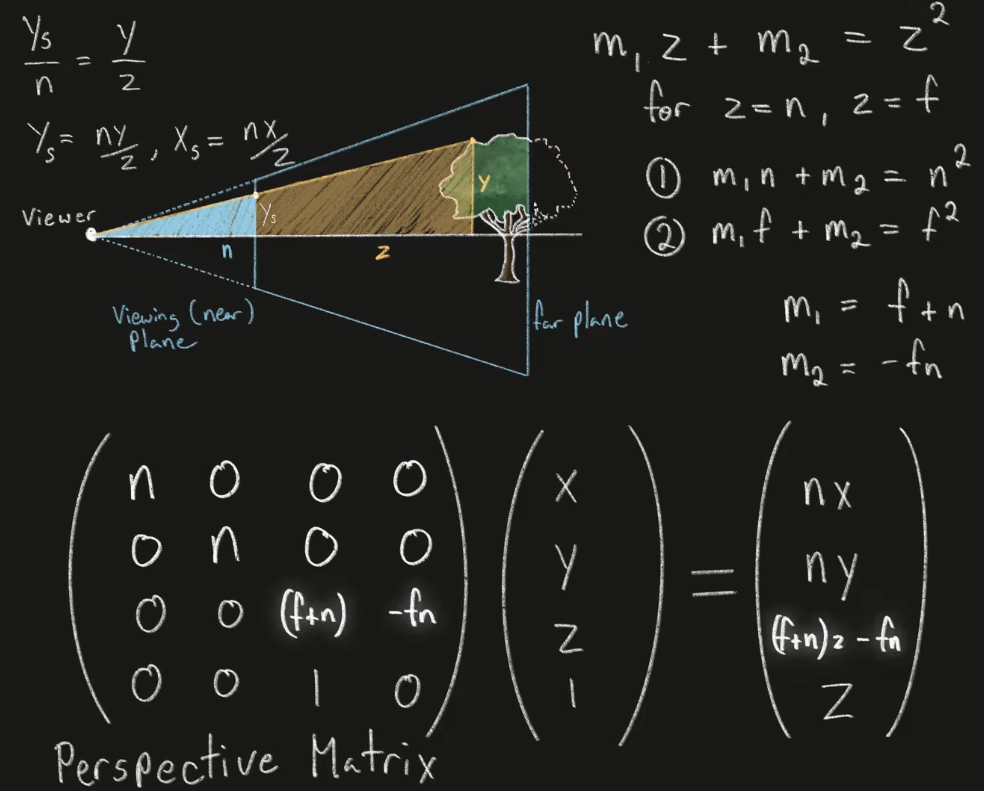 ys/n = y/z
ys = ny/z, xs = nx/z
Viewer
n
ys
z
y
Viewing (near)
Plane
far plane
m₁ z + m₂ = z²
for z=n, z=f
① m₁n + m₂ = n²
② m₁f + m₂ = f²
m₁ = f+n
m₂ = -fn
n 0 0 0 x nx
0 n 0 0 y = ny
0 0 (f+n) -fn z (f+n)z - fn
0 0 1 0 1 z
Perspective Matrix